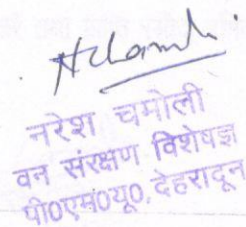 नरेश चमोली
वन संरक्षण विशेषज्ञ
पी0एम0यू0, देहरादून